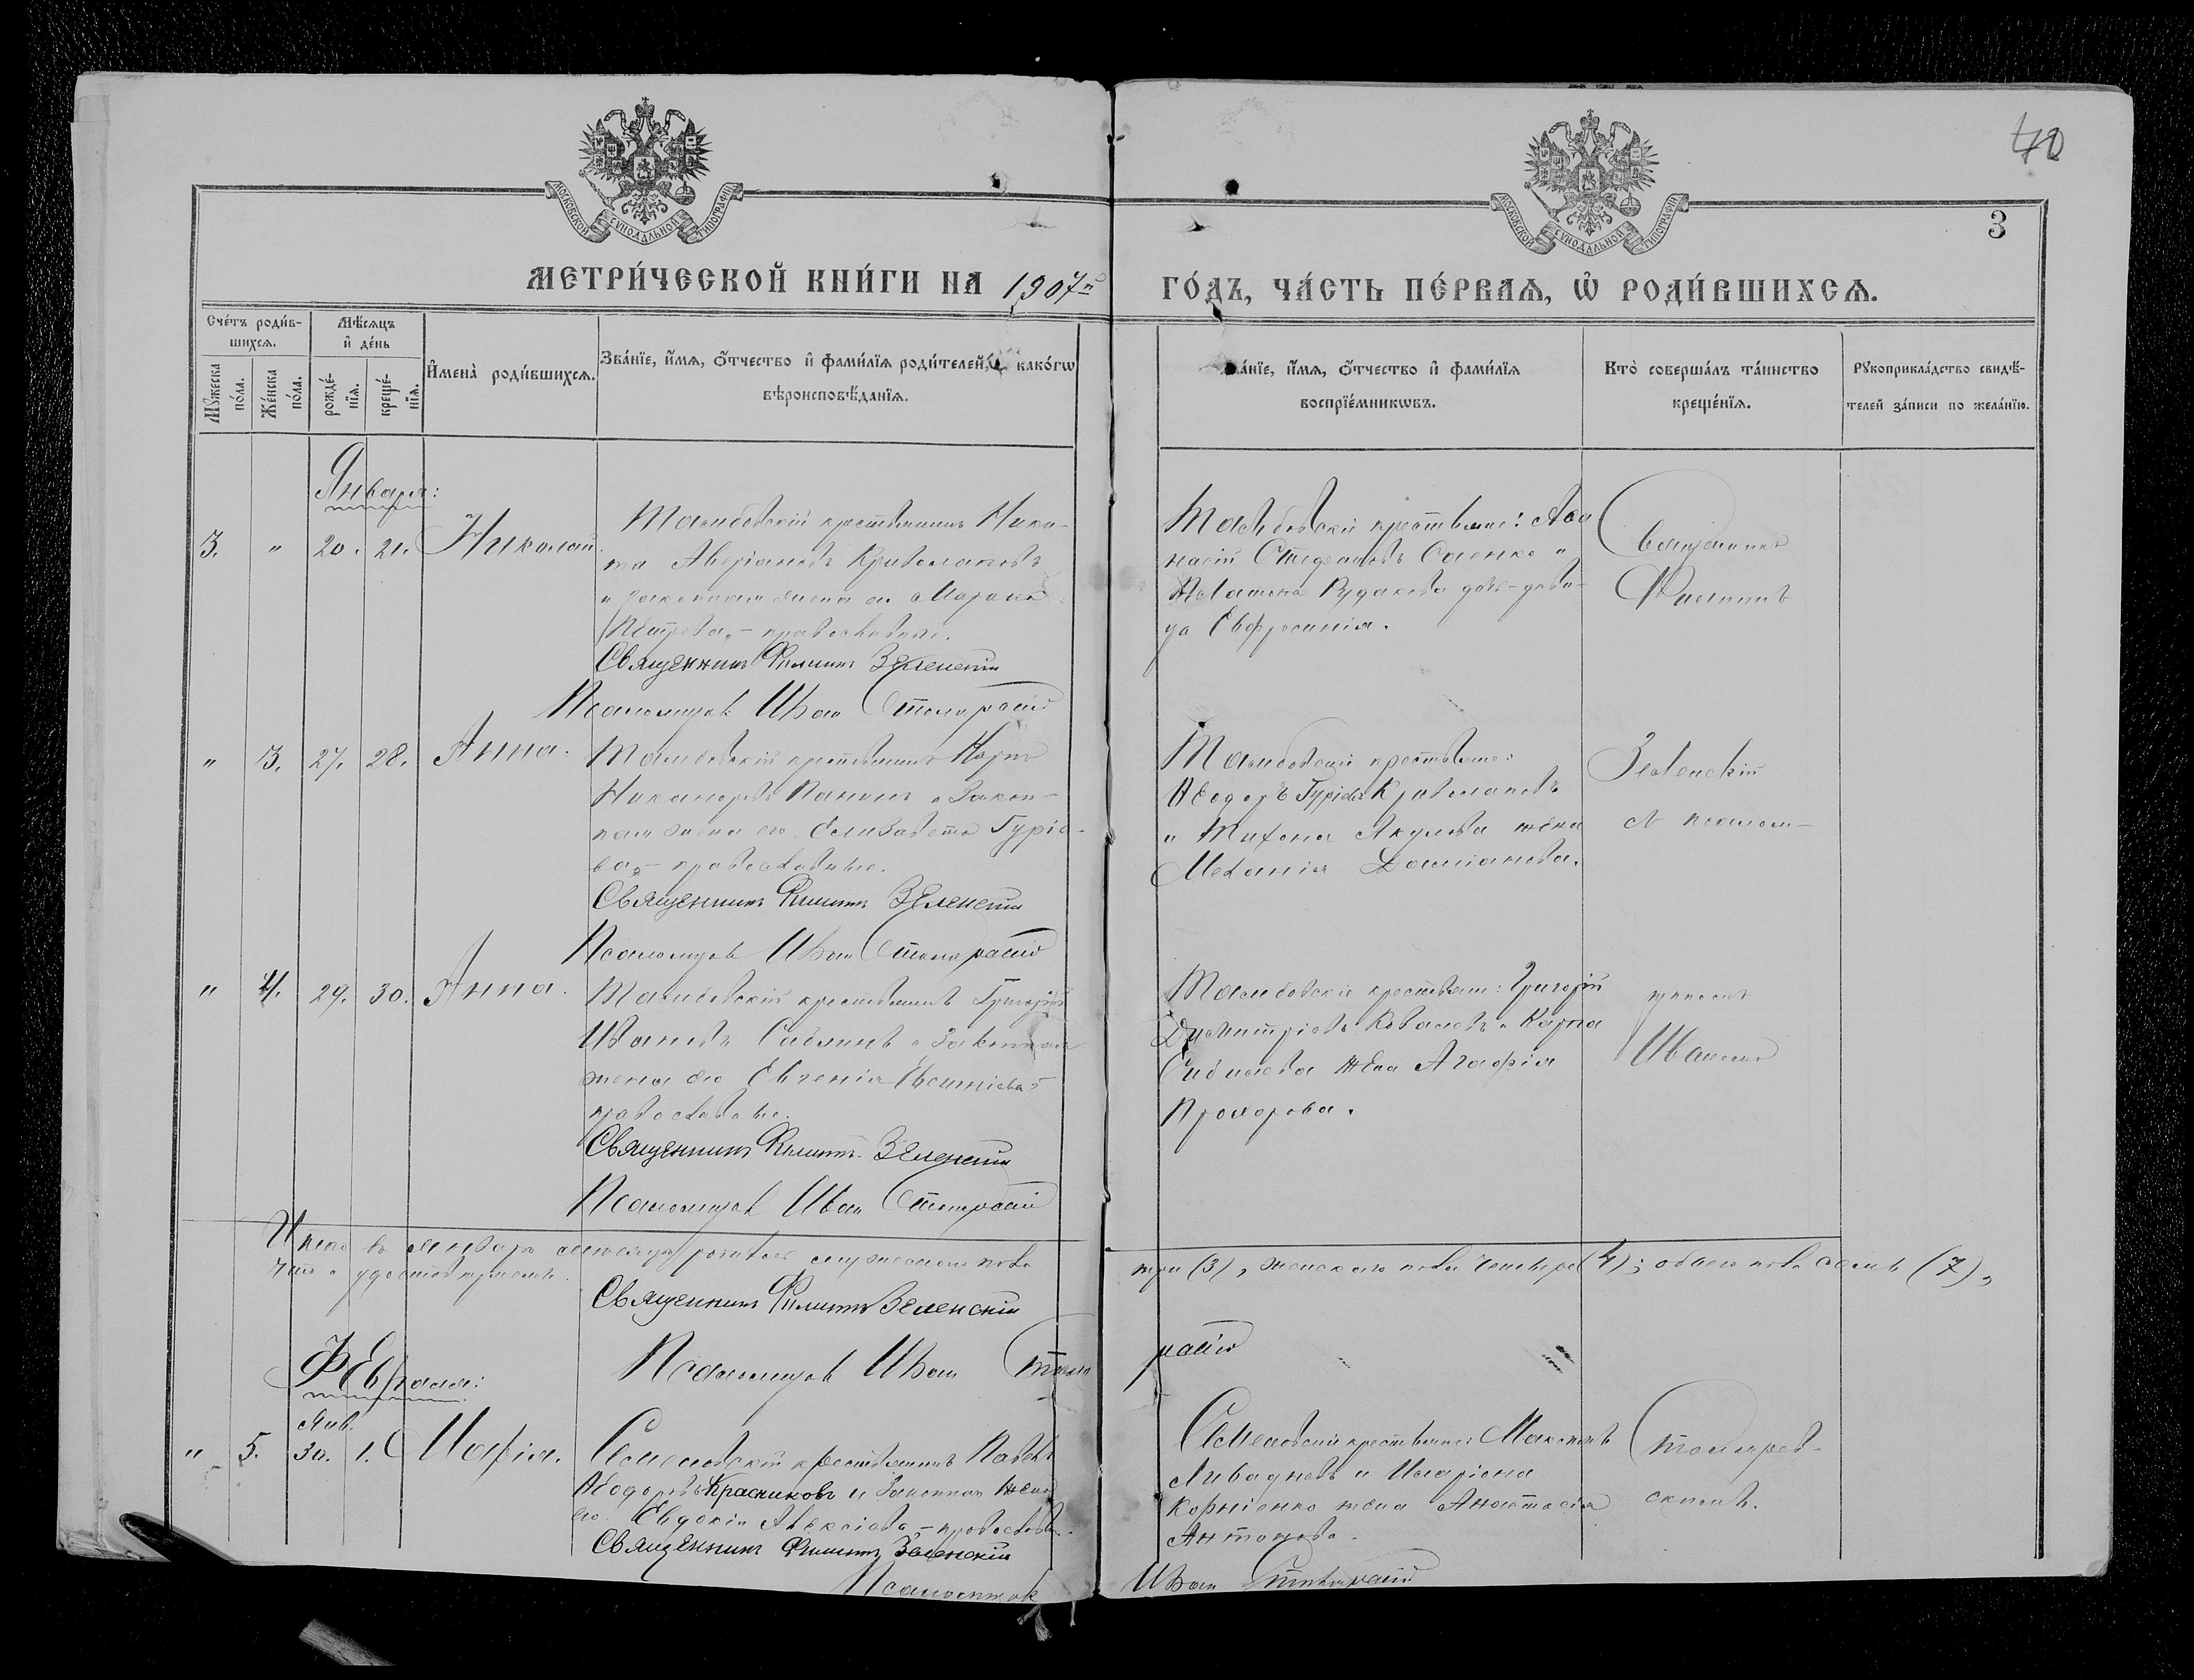 40
3
МОСКОВСКОЙ СУНОДАЛЬНОЙ ТИПОГРАФІИ
МОСКОВСКОЙ СУНОДАЛЬНОЙ ТИПОГРАФІИ
МЕТРИ́ЧЕСКОЙ КНИ́ГИ НА 1907й ГО́ДЪ, ЧА́СТЬ ПЕ́РВАѦ, Ѡ҆ РОДИ́ВШИХСѦ.
Сче́тъ роди́в-
шихсѧ.
Мꙋ́жеска
по́ла.
Же́нска
по́ла.
Мѣ́сѧцъ
и҆ де́нь
рожде́-
нїѧ.
креще́-
нїѧ.
И҆мена̀ роди́вшихсѧ.
Зва́нїе, и҆́мѧ, ѻ҆́тчество и҆ фами́лїѧ роди́телей, и҆ како́гѡ
вѣроисповѣ́данїѧ.
Зва́нїе, и҆́мѧ, ѻ҆́тчество и҆ фами́лїѧ
воспрїе́мникѡвъ.
Кто̀ соверша́лъ та́инство
креще́нїѧ.
Рꙋкоприкла́дство свидѣ́-
телей за́писи по жела́нїю.
Января:
3. " 20. 21. Николай.
крестьянинъ Ники-
та Аверіановъ Криволаповъ
и законная жена его Марина
Петрова, – православные.
Священникъ Филиппъ Зеленскій
Псаломщикъ Иванъ
крестьяне: Афа
насій Стефановъ Саенко и
Рудакова дочь-деви-
ца Евфросинія.
Священникъ
Филиппъ
" 3. 27. 28. Анна.
крестьянинъ Карпъ
Никаноровъ Панинъ и закон-
ная жена его Елизавета Гурі-
ева, – православные.
Священникъ Филиппъ Зеленскій
Псаломщикъ Иванъ
крестьяне:
Ѳеодоръ Гуріевъ Криволаповъ
и Тихона Акулова жена
Меланія Даміанова.
Зеленскій
съ псалом-
" 4. 29. 30. Анна.
крестьянинъ Григорій
Ивановъ Саблинъ и законная
жена его Евгенія
православные.
Священникъ Филиппъ Зеленскій
Псаломщикъ Иванъ
крестьяне: Григорій
Димитріевъ Ковалевъ и Карпа
жена Агафія
Прохорова.
щикомъ
Иваномъ
Итого въ январѣ мѣсяцѣ родилось мужескаго пола три (3), женскаго пола четыре (4); обоего пола семь (7),
что и удостовѣряемъ.
Священникъ Филиппъ Зеленскій
Псаломщикъ Иванъ
Февраля:
Янв.
" 5. 30. 1. Марія.
крестьянинъ Павелъ
Ѳеодоровъ Красниковъ и законная жена
его Евдокія Алексіева, – православн.
Священникъ Филиппъ Зеленскій
Псаломщикъ Иванъ
крестьяне: Максимъ
Ливадневъ и Иларіона
Корніенко жена Анастасія
Антонова.
скимъ.